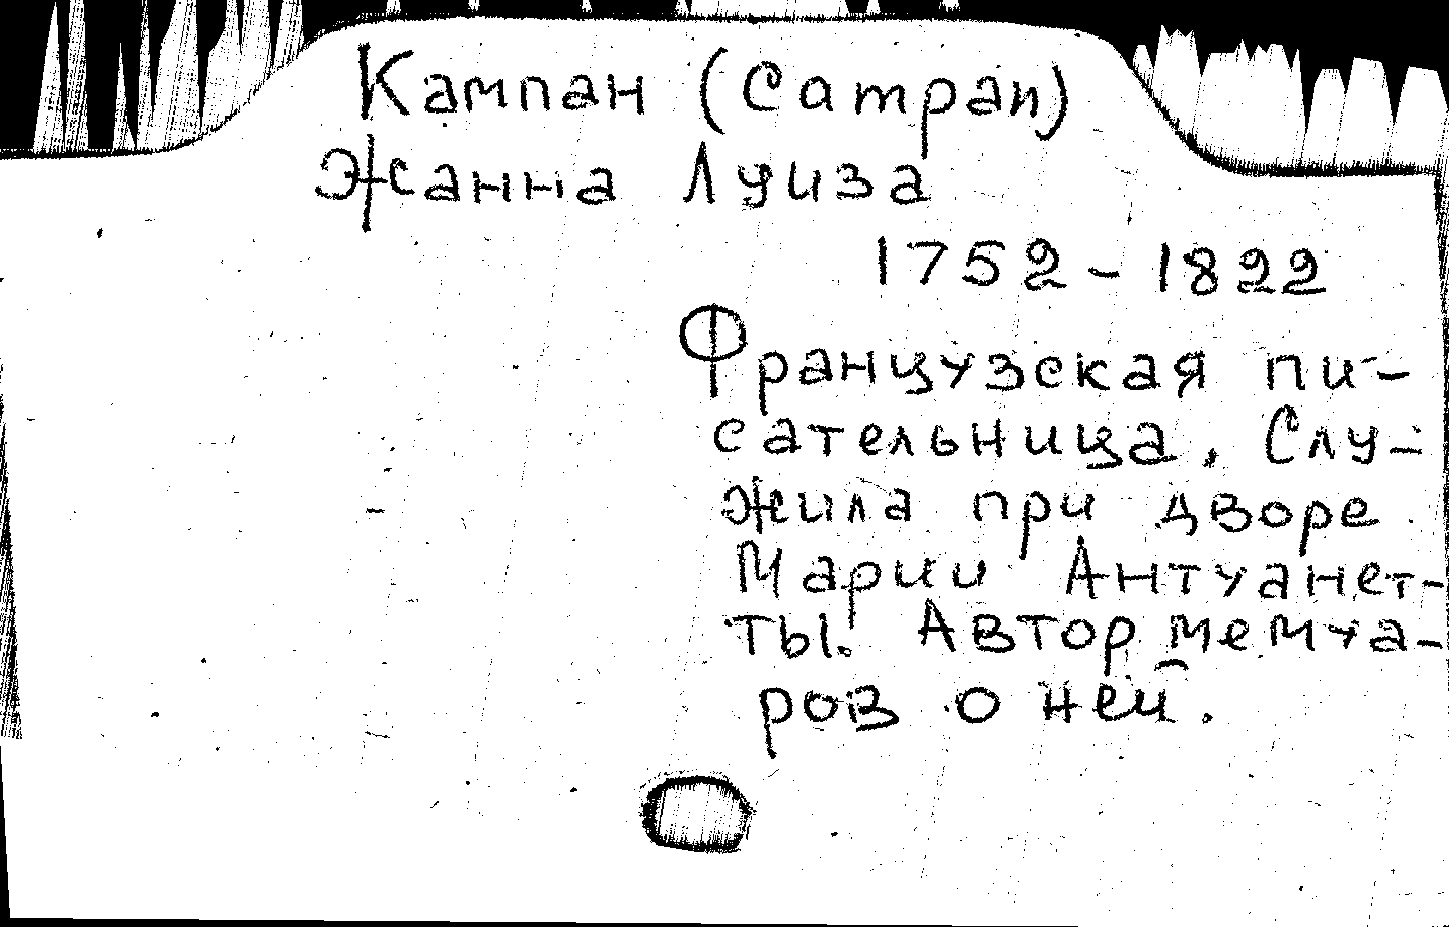 Кампан (Campan)
Жанна Луиза
1752-1822
Французская пи-
сательница. Слу-
жила при дворе
Марии Антуанет-
ты. Автор мемуа-
ров о ней.